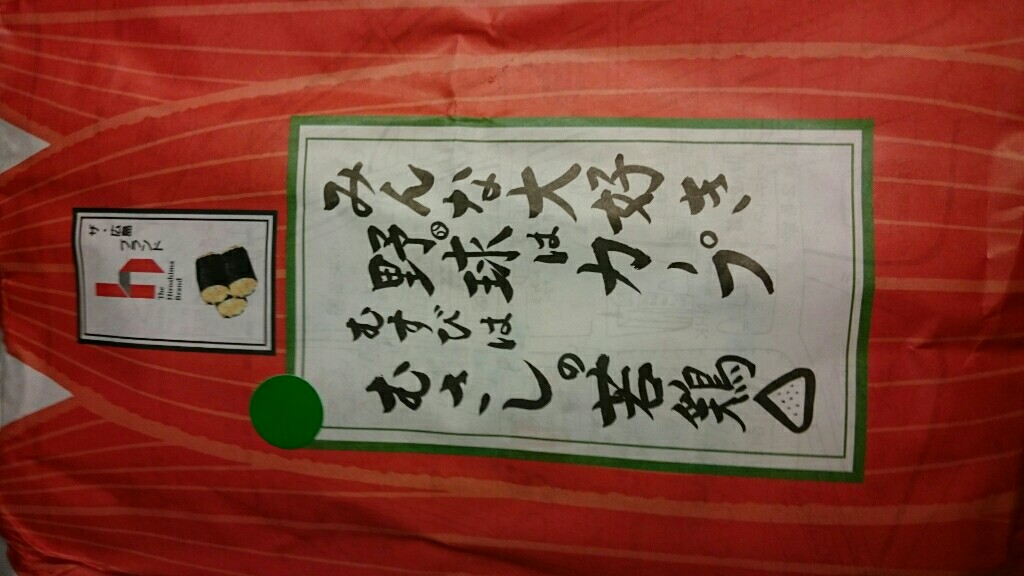 みんな大好き、
野の球はカープ
むすびは
むさしの若鶏
ザ・広島
ブランド
The
Hiroshima
Brand